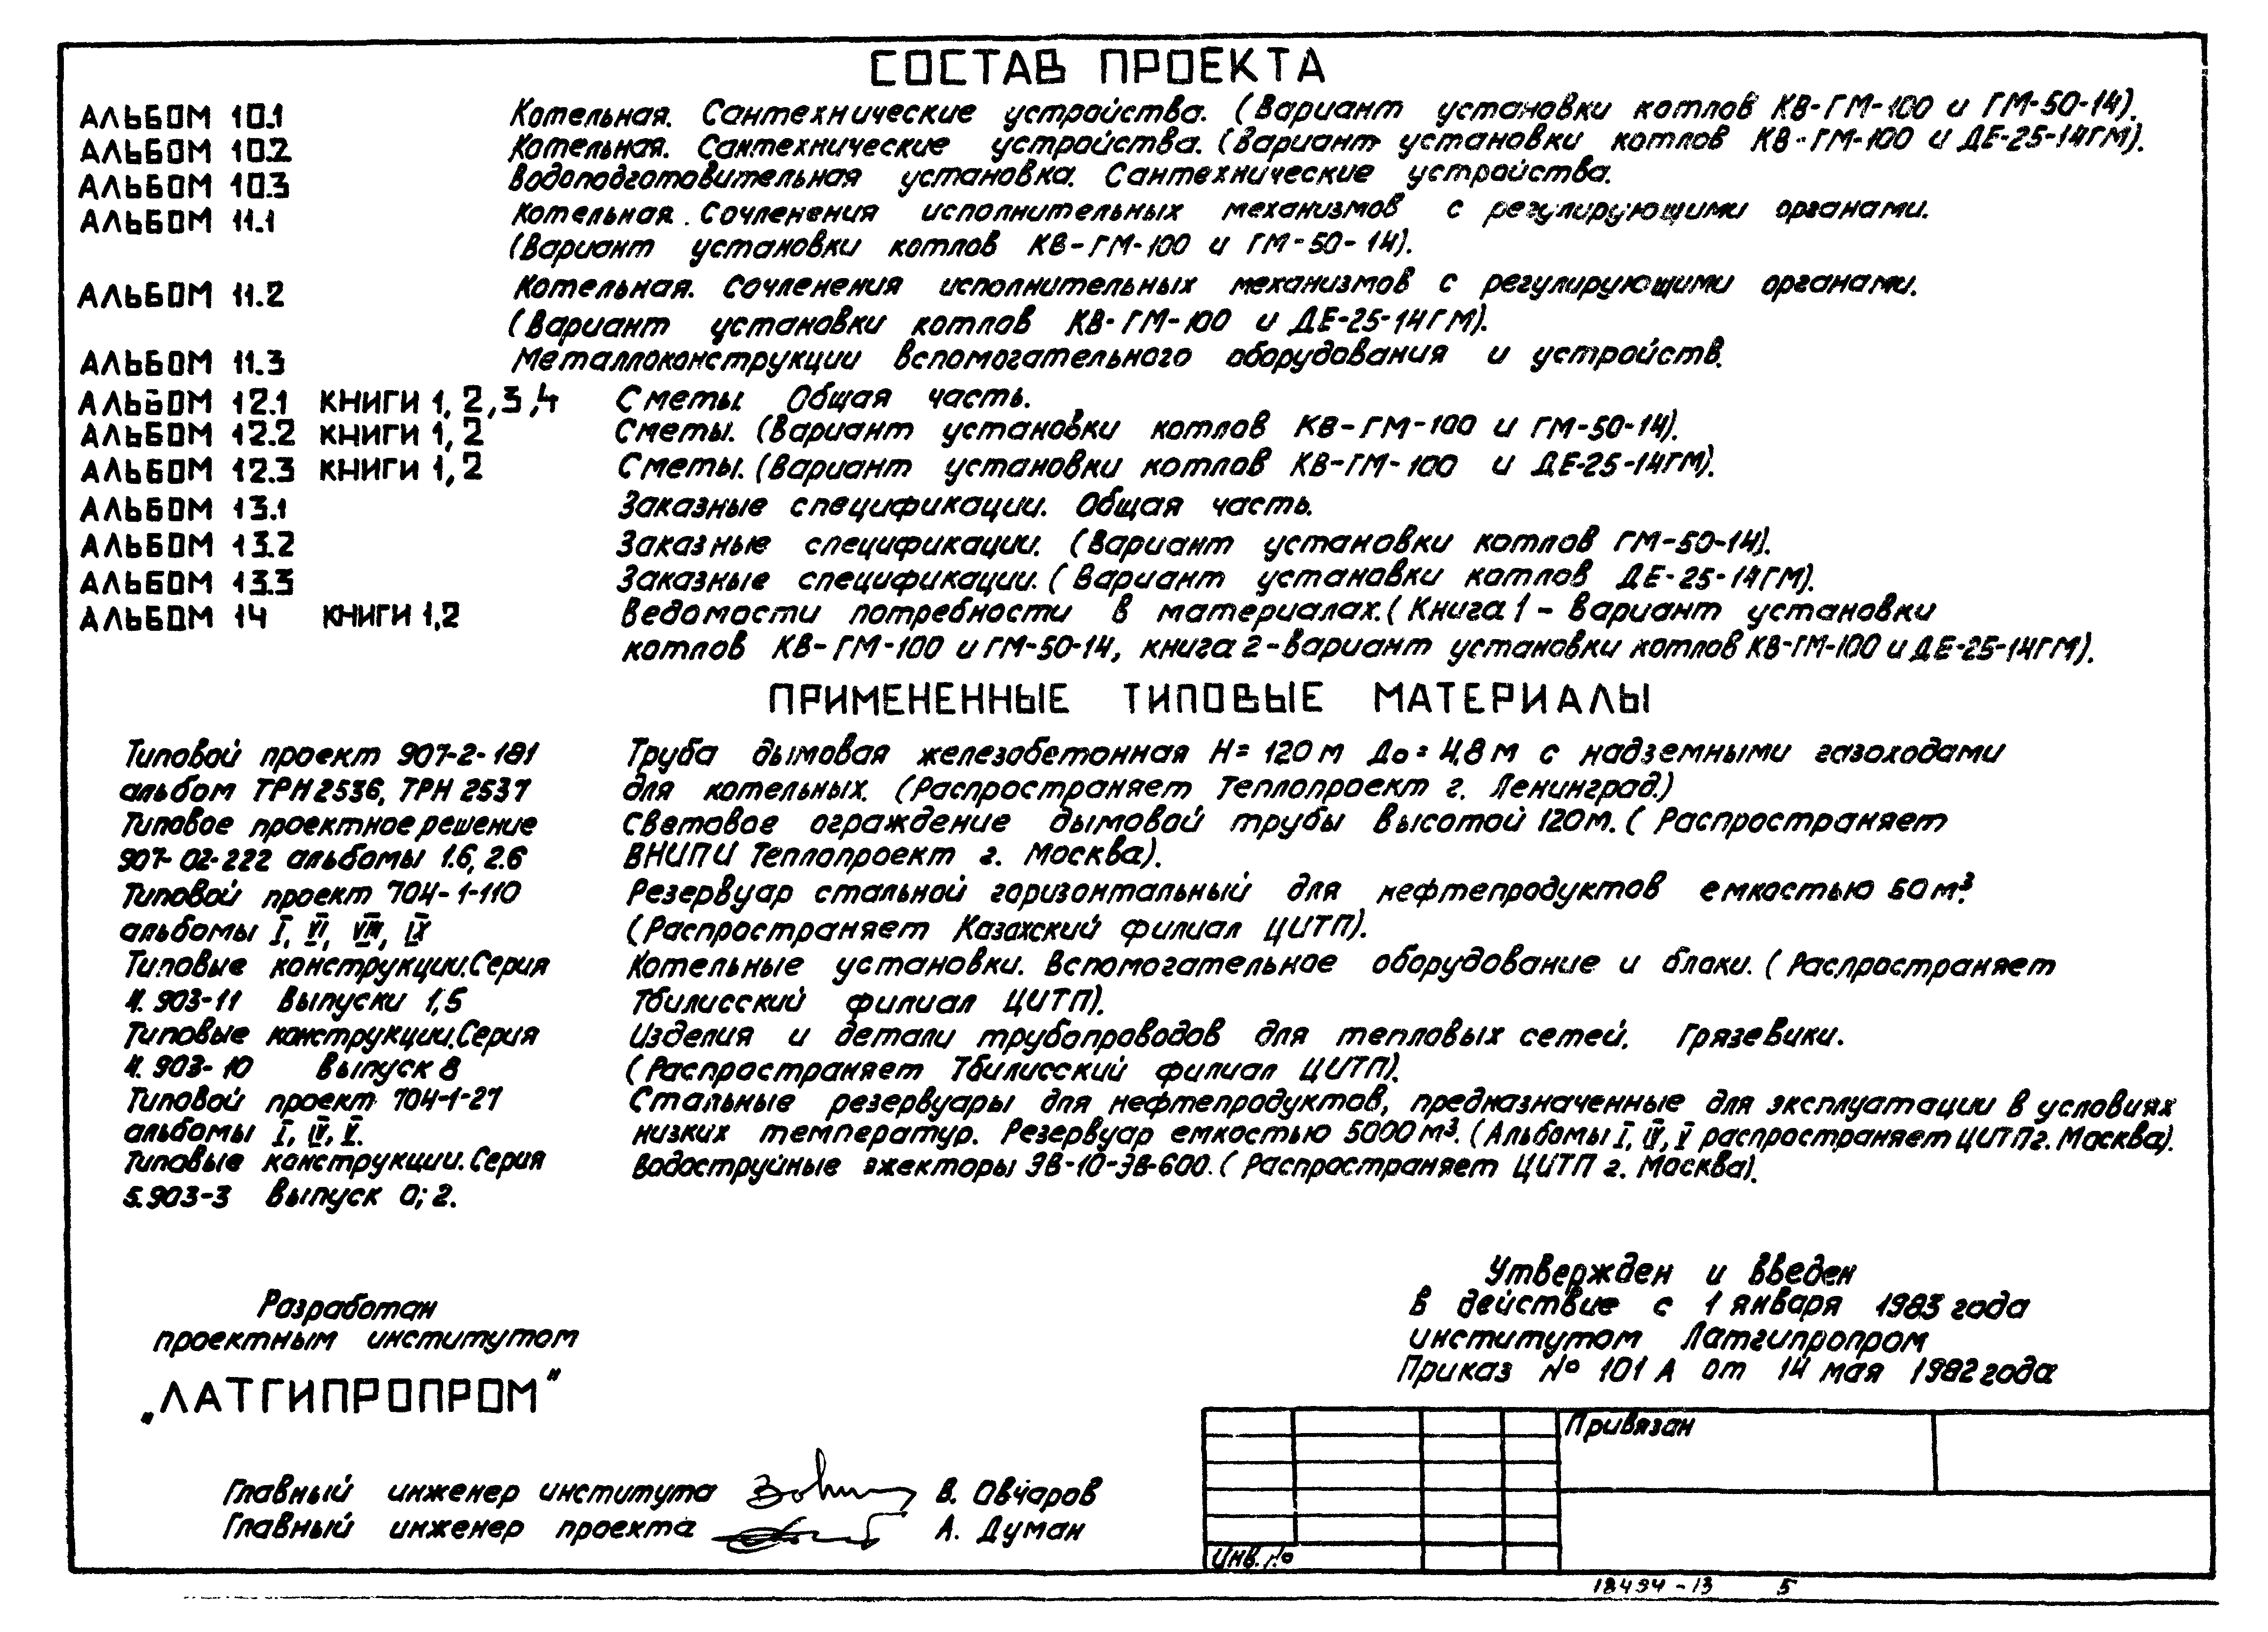 СОСТАВ ПРОЕКТА
АЛЬБОМ 10.1 Котельная. Сантехнические устройства. (Вариант установки котлов КВ-ГМ-100 и ГМ-50-14).
АЛЬБОМ 10.2 Котельная. Сантехнические устройства. (Вариант установки котлов КВ-ГМ-100 и ДЕ-25-14ГМ).
АЛЬБОМ 10.3 Водоподготовительная установка. Сантехнические устройства.
АЛЬБОМ 11.1 Котельная. Сочленения исполнительных механизмов с регулирующими органами.
(Вариант установки котлов КВ-ГМ-100 и ГМ-50-14).
АЛЬБОМ 11.2 Котельная. Сочленения исполнительных механизмов с регулирующими органами.
(Вариант установки котлов КВ-ГМ-100 и ДЕ-25-14ГМ).
АЛЬБОМ 11.3 Металлоконструкции вспомогательного оборудования и устройств.
АЛЬБОМ 12.1 КНИГИ 1, 2, 3, 4 Сметы. Общая часть.
АЛЬБОМ 12.2 КНИГИ 1, 2 Сметы. (Вариант установки котлов КВ-ГМ-100 и ГМ-50-14).
АЛЬБОМ 12.3 КНИГИ 1, 2 Сметы. (Вариант установки котлов КВ-ГМ-100 и ДЕ-25-14ГМ).
АЛЬБОМ 13.1 Заказные спецификации. Общая часть.
АЛЬБОМ 13.2 Заказные спецификации. (Вариант установки котлов ГМ-50-14).
АЛЬБОМ 13.3 Заказные спецификации. (Вариант установки котлов ДЕ-25-14ГМ).
АЛЬБОМ 14 КНИГИ 1,2 Ведомости потребности в материалах. (Книга 1 - вариант установки
котлов КВ-ГМ-100 и ГМ-50-14, книга 2-вариант установки котлов КВ-ГМ-100 и ДЕ-25-14ГМ).
ПРИМЕНЕННЫЕ ТИПОВЫЕ МАТЕРИАЛЫ
Типовой проект 907-2-181 Труба дымовая железобетонная Н=120м До=4,8м с надземными газоходами
альбом ТРН2536, ТРН 2537 для котельных. (Распространяет Теплопроект г. Ленинград.)
Типовое проектное решение Световое ограждение дымовой трубы высотой 120м. (Распространяет
907-02-222 альбомы 1.6, 2.6 ВНИПИ Теплопроект г. Москва).
Типовой проект 704-1-110 Резервуар стальной горизонтальный для нефтепродуктов емкостью 50м³.
альбомы I, VI, VIII, IX (Распространяет Казахский филиал ЦИТП).
Типовые конструкции. Серия Котельные установки. Вспомогательное оборудование и блоки. (Распространяет
4.903-11 Выпуски 1,5 Тбилисский филиал ЦИТП).
Типовые конструкции. Серия Изделия и детали трубопроводов для тепловых сетей. Грязевики.
4.903-10 Выпуск 8 (Распространяет Тбилисский филиал ЦИТП).
Типовой проект 704-1-27 Стальные резервуары для нефтепродуктов, предназначенные для эксплуатации в условиях
альбомы I, IV, V. низких температур. Резервуар емкостью 5000м³. (Альбомы I, IV, V распространяет ЦИТП г. Москва).
Типовые конструкции. Серия Водоструйные эжекторы ЭВ-10-ЭВ-600. (Распространяет ЦИТП г. Москва).
5.903-3 Выпуск 0; 2.
Утвержден и введен
в действие с 1 января 1983 года
институтом Латгипропром
Приказ № 101 А от 14 мая 1982 года
Разработан
проектным институтом
„ЛАТГИПРОПРОМ"
Главный инженер института В. Овчаров
Главный инженер проекта А. Думан
Привязан
Инв. №
18494-13 5